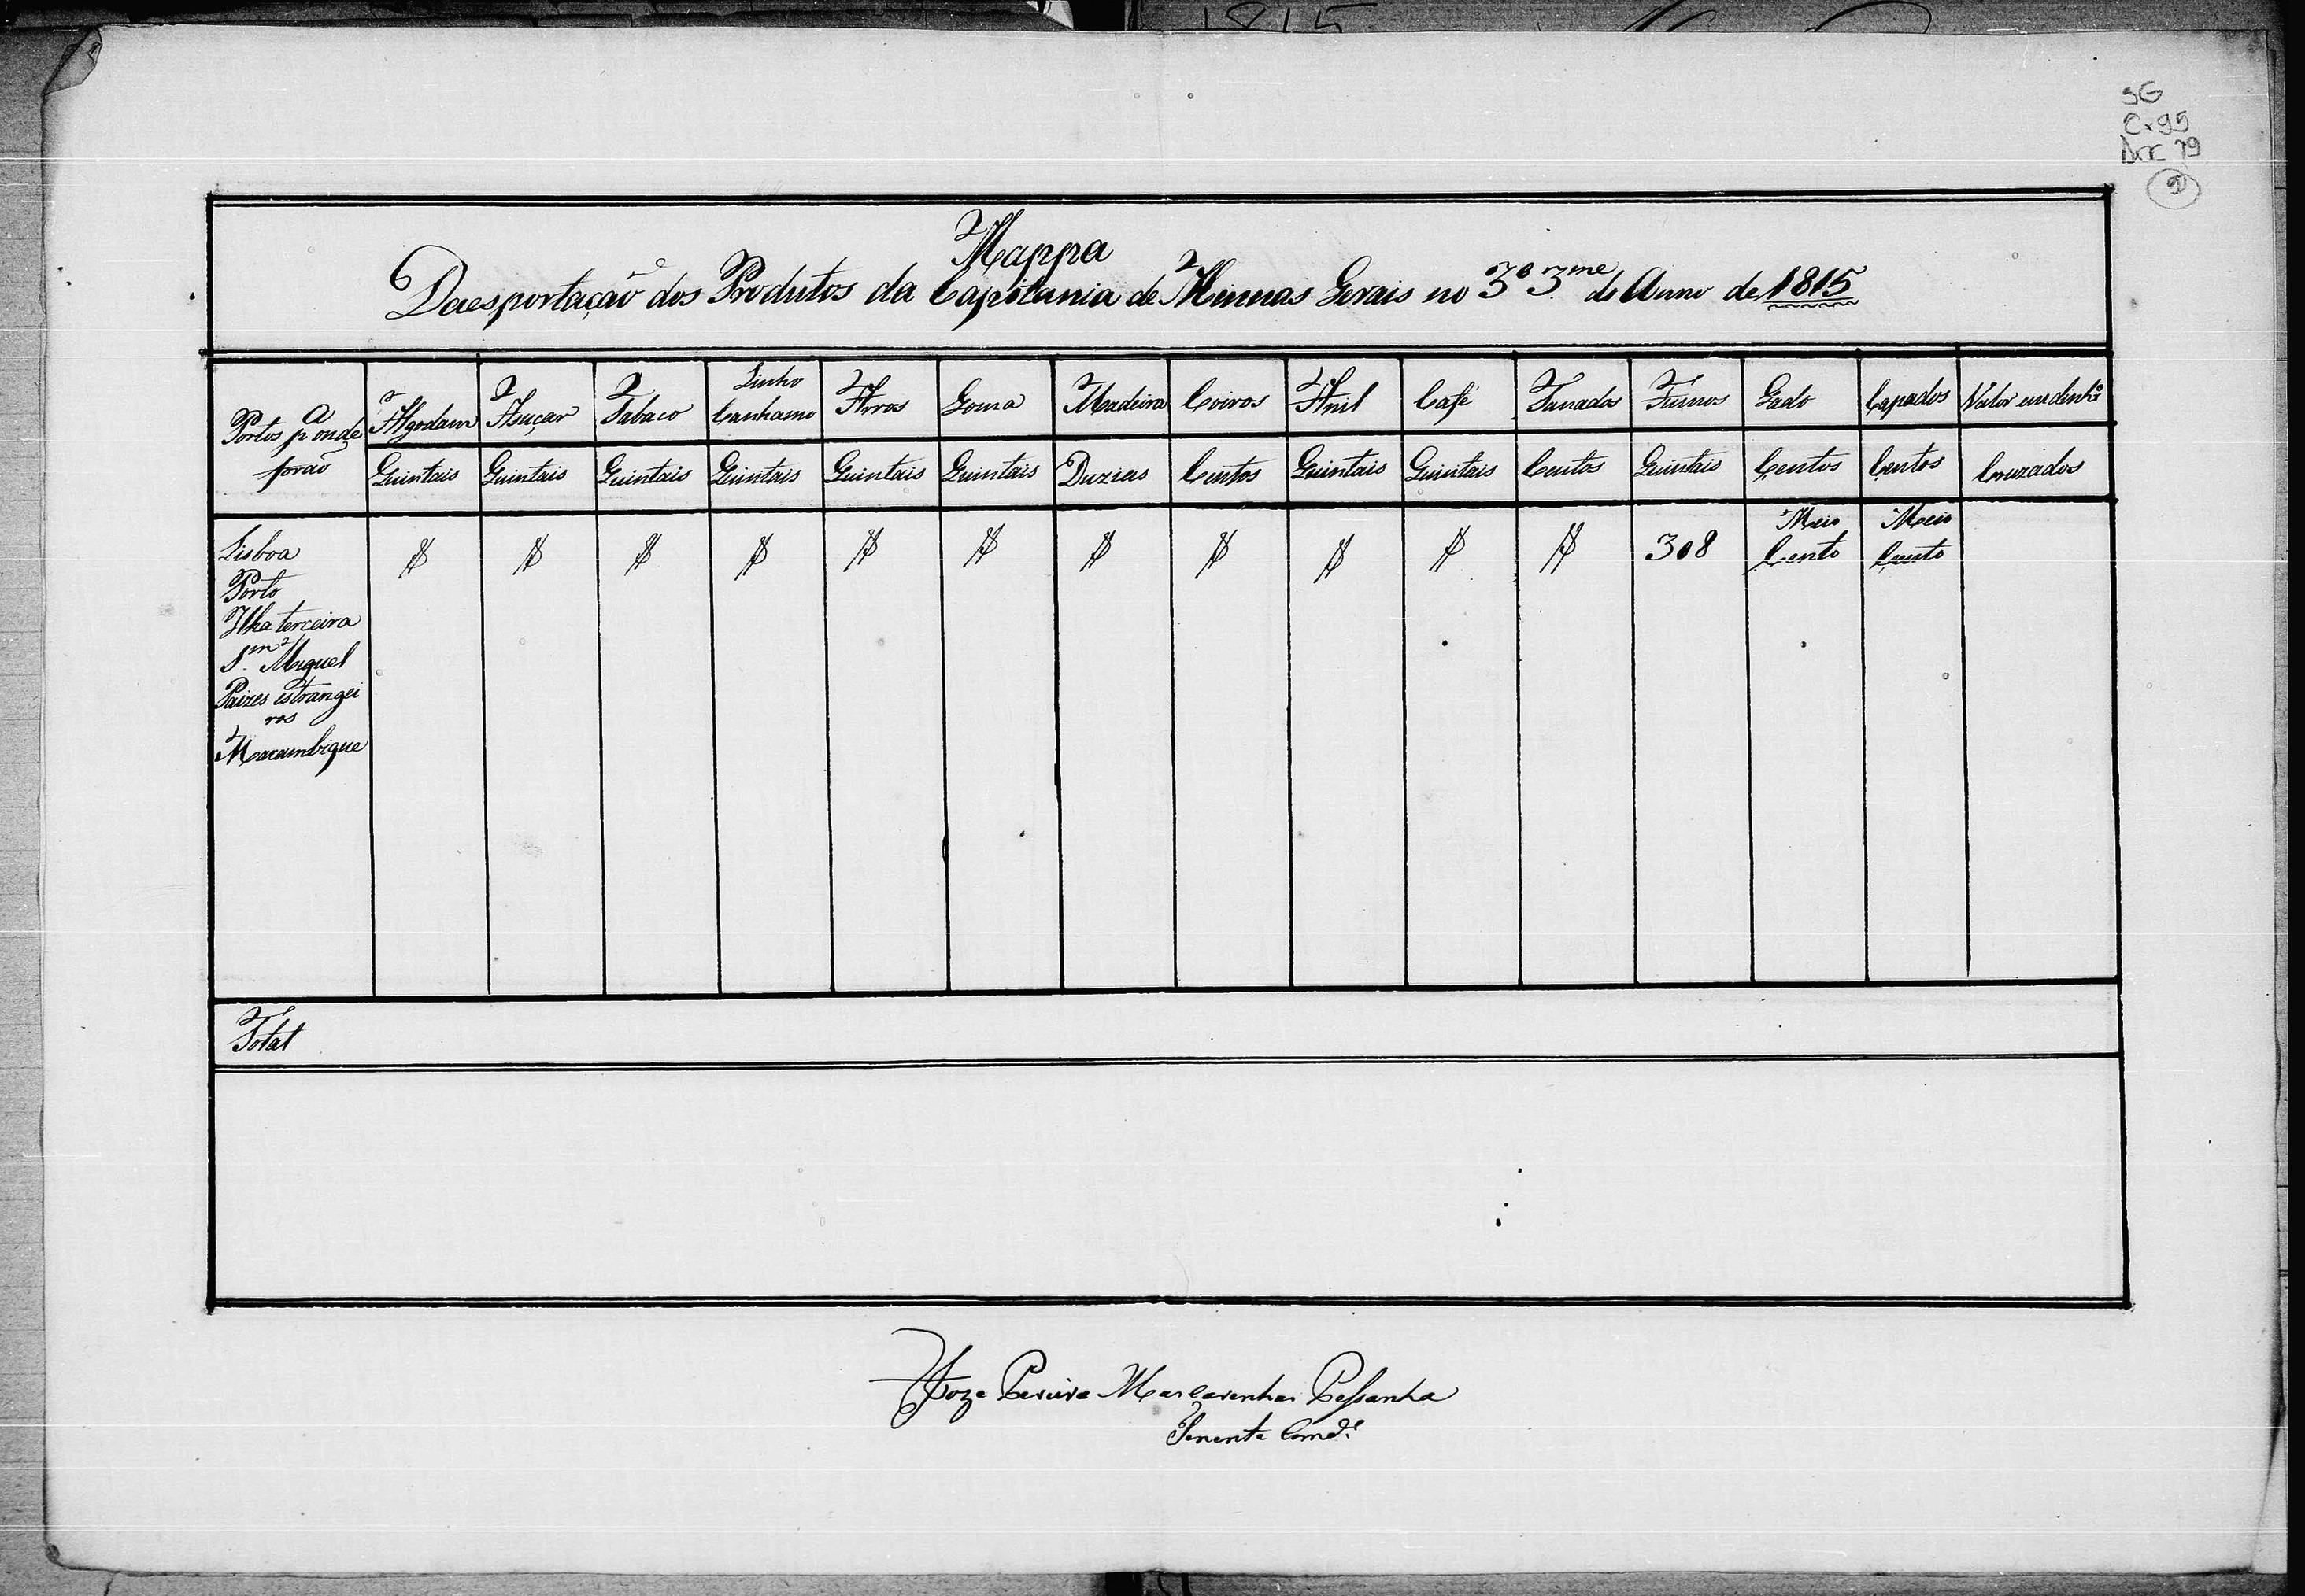 1815
SG
Cx 95
Doc 79
2
Mappa
Da esportação dos Produtos da Capitania de Minnas Gerais no 3º 3.me do Anno de 1815
Portos pª onde forão
Algodam
Asuçar
Tabaco
Linho Canhamo
Arros
Goma
Madeira
Coiros
Anil
Café
Tanados
Fumos
Gado
Capados
Valor em dinhrº
Quintais
Quintais
Quintais
Quintais
Quintais
Quintais
Duzias
Centos
Quintais
Quintais
Centos
Quintais
Centos
Centos
Cruzados
Lisboa $ $ $ $ $ $ $ $ $ $ $ 308 Meio Cento Meio Cento
Porto
Ilha terceira
S.m Miguel
Paizes estrangei
ros
Macambique
Total
Joze Pereira Mascarenhas Peſsanha
Tenente Comd.e